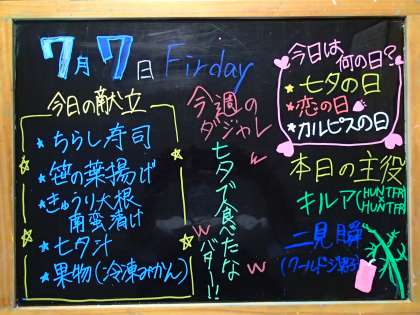 7月7日 Firday
今日の献立
★ちらし寿司
★笹の葉揚げ
★きゅうり大根
南蛮漬け
★七夕汁
★果物(冷凍みかん)
今週の
ダジャレ
七夕で食べたな
バター!!
w
w
w
今日は
何の日?
★七夕の日
★恋の日
★カルピスの日
本日の主役
キルア(HUNTER×HUNTER)
二見 瞬